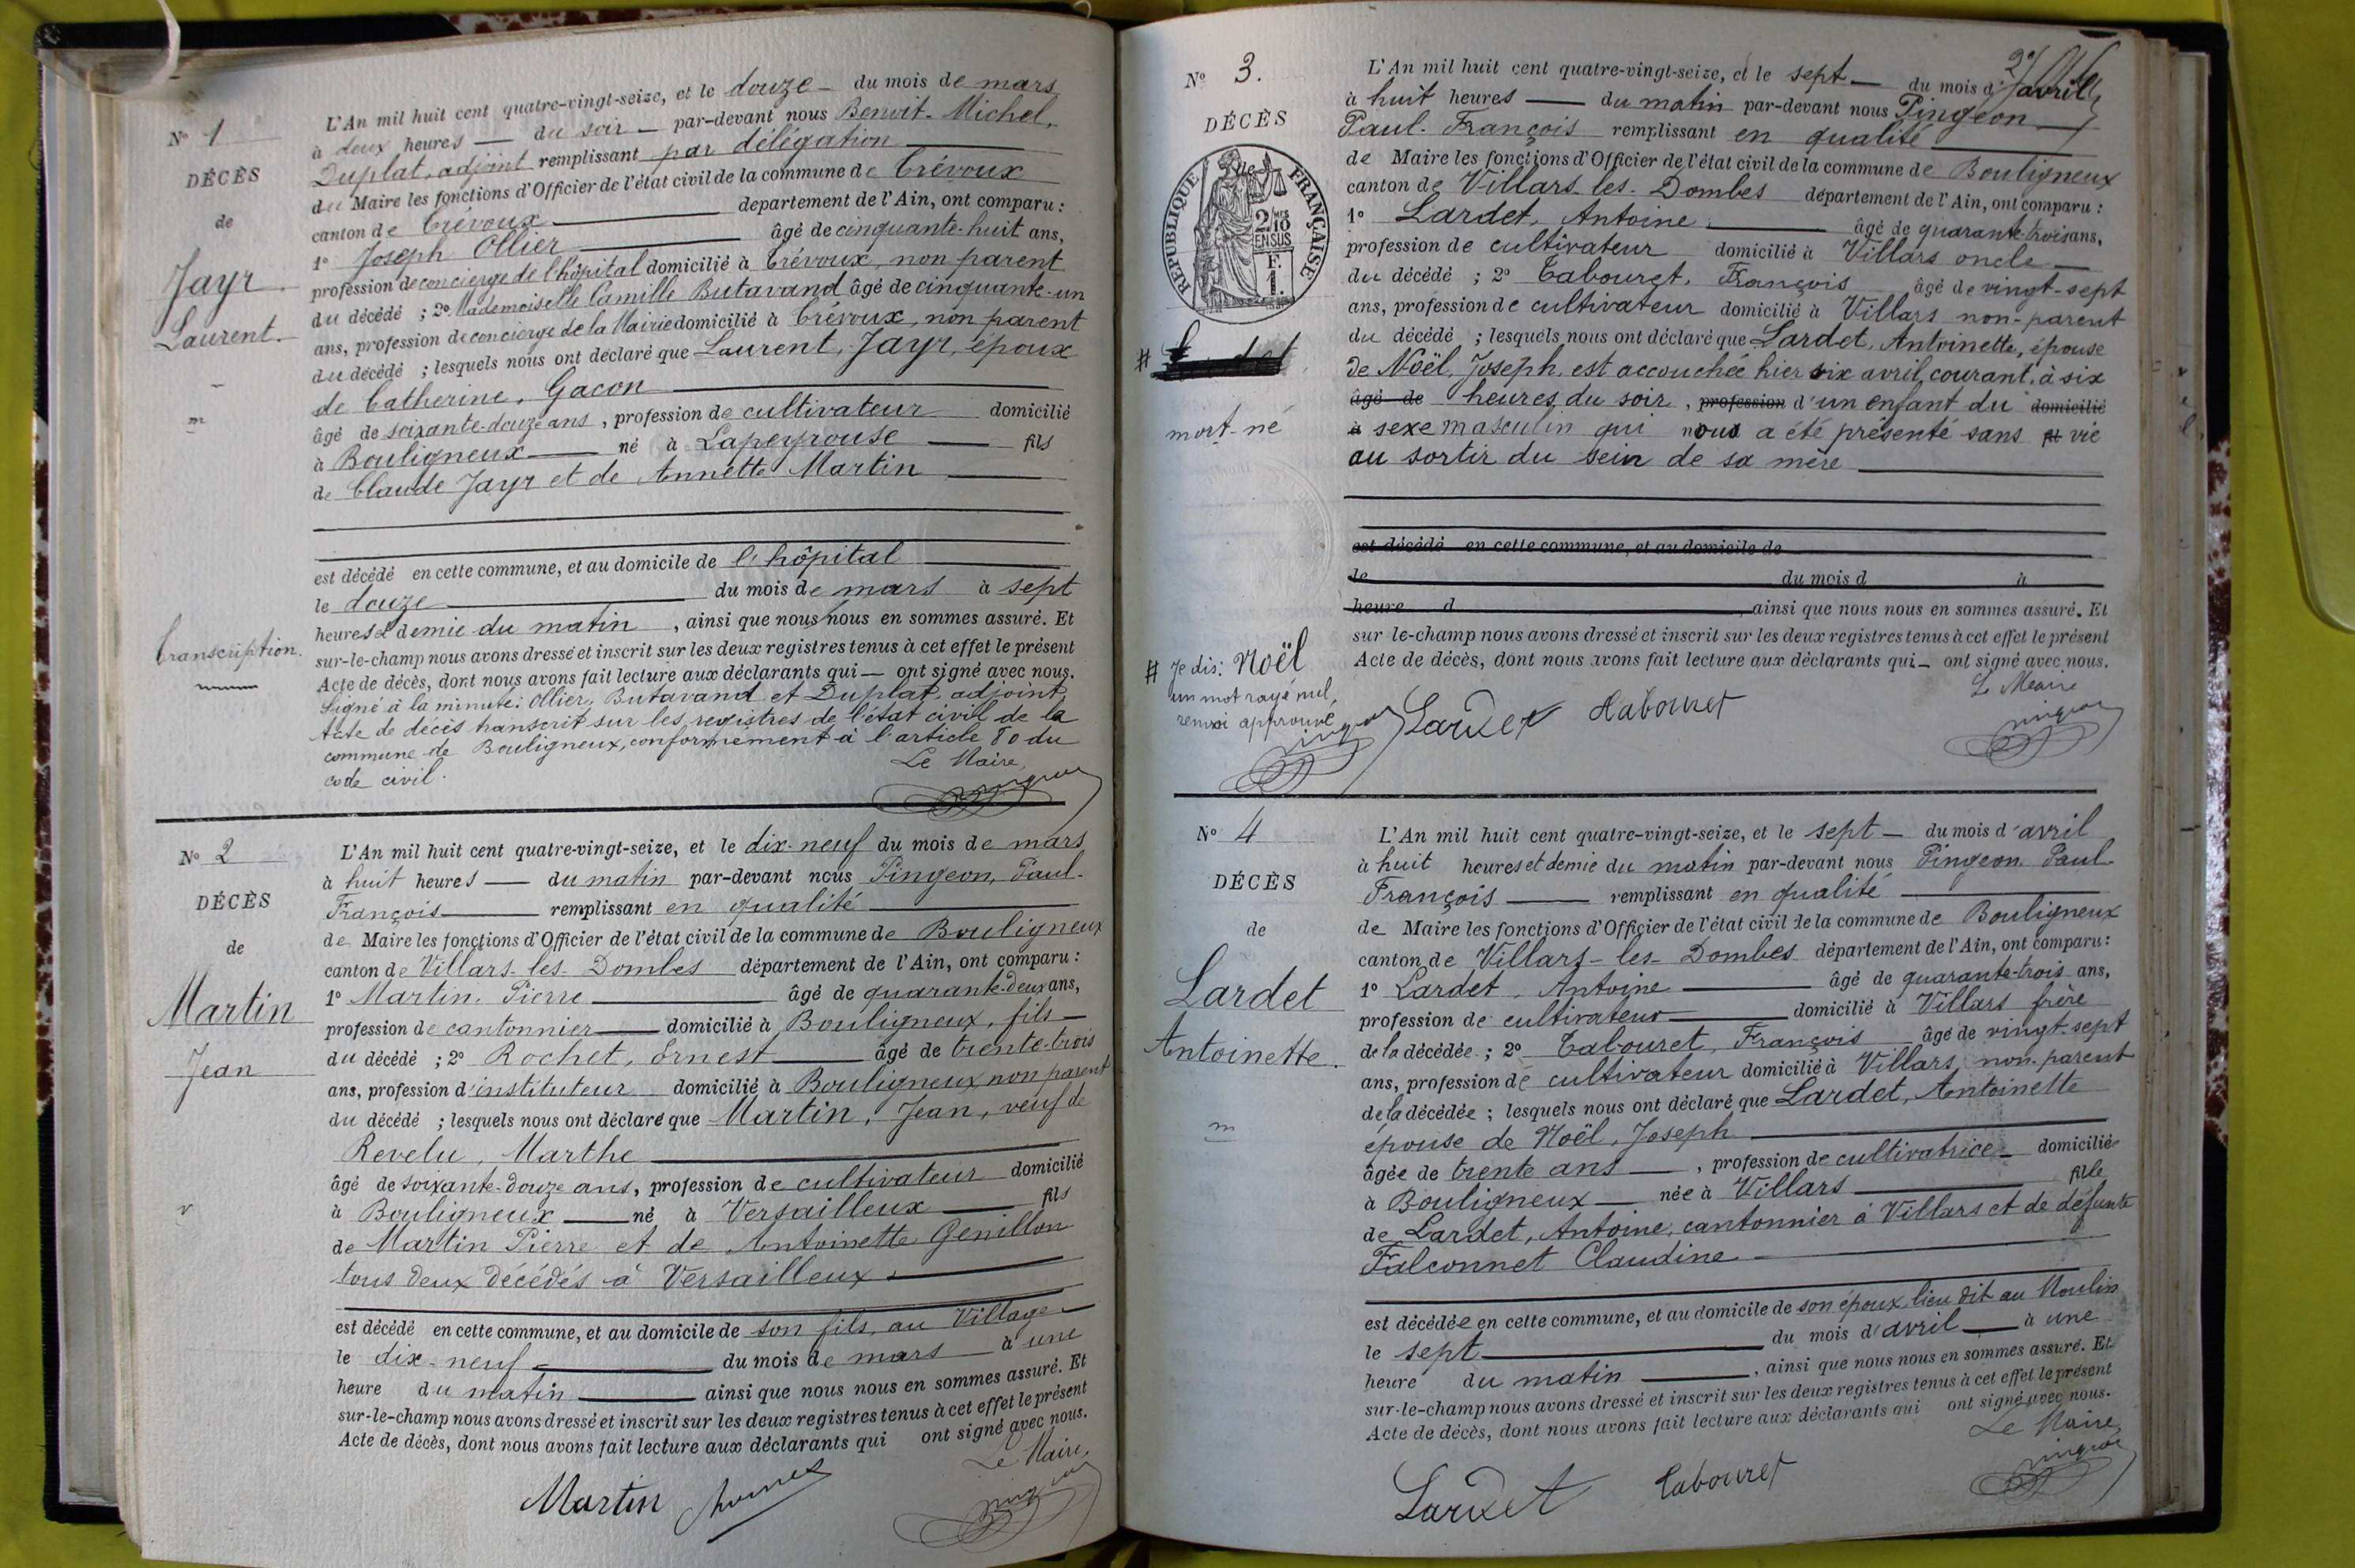 N° 1
DÉCÈS
de
Jayr
Laurent.
Transcription.
L'An mil huit cent quatre-vingt-seize, et le douze du mois de mars
à deux heures du soir par-devant nous Benoit-Michel,
Duplat, adjoint remplissant par délégation
du Maire les fonctions d'Officier de l'état civil de la commune de Trévoux
canton de Trévoux département de l'Ain, ont comparu :
1° Joseph Ollier âgé de cinquante-huit ans,
profession de concierge de l'hôpital domicilié à Trévoux, non parent
du décédé ; 2° Mademoiselle Camille Butavand âgé de cinquante-un
ans, profession de concierge de la Mairie domicilié à Trévoux, non parent
du décédé ; lesquels nous ont déclaré que Laurent, Jayr, époux
de Catherine, Gacon
âgé de soixante-douze ans, profession de cultivateur domicilié
à Bouligneux né à Lapeyrouse fils
de Claude Jayr et de Annette Martin
est décédé en cette commune, et au domicile de l'hôpital
le douze du mois de mars à sept
heures et demie du matin, ainsi que nous nous en sommes assuré. Et
sur-le-champ nous avons dressé et inscrit sur les deux registres tenus à cet effet le présent
Acte de décès, dont nous avons fait lecture aux déclarants qui — ont signé avec nous.
Signé à la minute: Ollier, Butavand et Duplat, adjoint,
Acte de décès transcrit sur les registres de l'état civil de la
commune de Bouligneux, conformément à l'article 80 du
code civil.
Le Maire,
Pingeon
N° 2
DÉCÈS
de
Martin
Jean
L'An mil huit cent quatre-vingt-seize, et le dix-neuf du mois de mars
à huit heures — du matin par-devant nous Pingeon, Paul-
François remplissant en qualité
de Maire les fonctions d'Officier de l'état civil de la commune de Bouligneux
canton de Villars-les-Dombes département de l'Ain, ont comparu :
1° Martin. Pierre âgé de quarante-deux ans,
profession de cantonnier domicilié à Bouligneux, fils
du décédé ; 2° Rochet, Ernest âgé de trente-trois
ans, profession d'instituteur domicilié à Bouligneux non parent
du décédé ; lesquels nous ont déclaré que Martin, Jean, veuf de
Revelu, Marthe
âgé de soixante-douze ans, profession de cultivateur domicilié
à Bouligneux né à Versailleux fils
de Martin Pierre et de Antoinette Genillon
tous deux décédés à Versailleux.
est décédé en cette commune, et au domicile de son fils, au Village
le dix-neuf du mois de mars à une
heure du matin ainsi que nous nous en sommes assuré. Et
sur-le-champ nous avons dressé et inscrit sur les deux registres tenus à cet effet le présent
Acte de décès, dont nous avons fait lecture aux déclarants qui ont signé avec nous.
Le Maire,
Martin
Pingeon
N° 3.
DÉCÈS
de
RÉPUBLIQUE FRANÇAISE
2/10 EN SUS
F.
1.
#
mort-né
# Je dis: Noël
un mot rayé nul,
renvoi approuvé
Pingeon
L'An mil huit cent quatre-vingt-seize, et le sept — du mois d'avril
à huit heures — du matin par-devant nous Pingeon
Paul-François remplissant en qualité
de Maire les fonctions d'Officier de l'état civil de la commune de Bouligneux
canton de Villars-les-Dombes département de l'Ain, ont comparu :
1° Lardet, Antoine âgé de quarante-trois ans,
profession de cultivateur domicilié à Villars oncle
du décédé ; 2° Tabouret, François âgé de vingt-sept
ans, profession de cultivateur domicilié à Villars non-parent
du décédé ; lesquels nous ont déclaré que Lardet, Antoinette, épouse
de Noël, Joseph, est accouchée hier six avril courant, à six
âgé de heures du soir, profession d'un enfant du domicilié
à sexe masculin qui nous a été présenté sans vie
au sortir du sein de sa mère
est décédé en cette commune, et au domicile de
le du mois d à
heure d , ainsi que nous nous en sommes assuré. Et
sur-le-champ nous avons dressé et inscrit sur les deux registres tenus à cet effet le présent
Acte de décès, dont nous avons fait lecture aux déclarants qui — ont signé avec nous.
Le Maire
Lardet Tabouret
Pingeon
N° 4
DÉCÈS
de
Lardet
Antoinette.
L'An mil huit cent quatre-vingt-seize, et le sept — du mois d'avril
à huit heures et demie du matin par-devant nous Pingeon. Paul-
François remplissant en qualité
de Maire les fonctions d'Officier de l'état civil de la commune de Bouligneux
canton de Villars-les-Dombes département de l'Ain, ont comparu :
1° Lardet, Antoine âgé de quarante-trois ans,
profession de cultivateur domicilié à Villars frère
de la décédée ; 2° Tabouret, François âgé de vingt-sept
ans, profession de cultivateur domicilié à Villars, non-parent
de la décédée ; lesquels nous ont déclaré que Lardet, Antoinette
épouse de Noël, Joseph
âgée de trente ans, profession de cultivatrice domiciliée
à Bouligneux née à Villars fille
de Lardet, Antoine, cantonnier à Villars et de défunte
Falconnet Claudine
est décédée en cette commune, et au domicile de son époux, lieu dit au Moulin
le sept du mois d'avril à une
heure du matin, ainsi que nous nous en sommes assuré. Et
sur-le-champ nous avons dressé et inscrit sur les deux registres tenus à cet effet le présent
Acte de décès, dont nous avons fait lecture aux déclarants qui ont signé avec nous.
Le Maire,
Lardet Tabouret
Pingeon